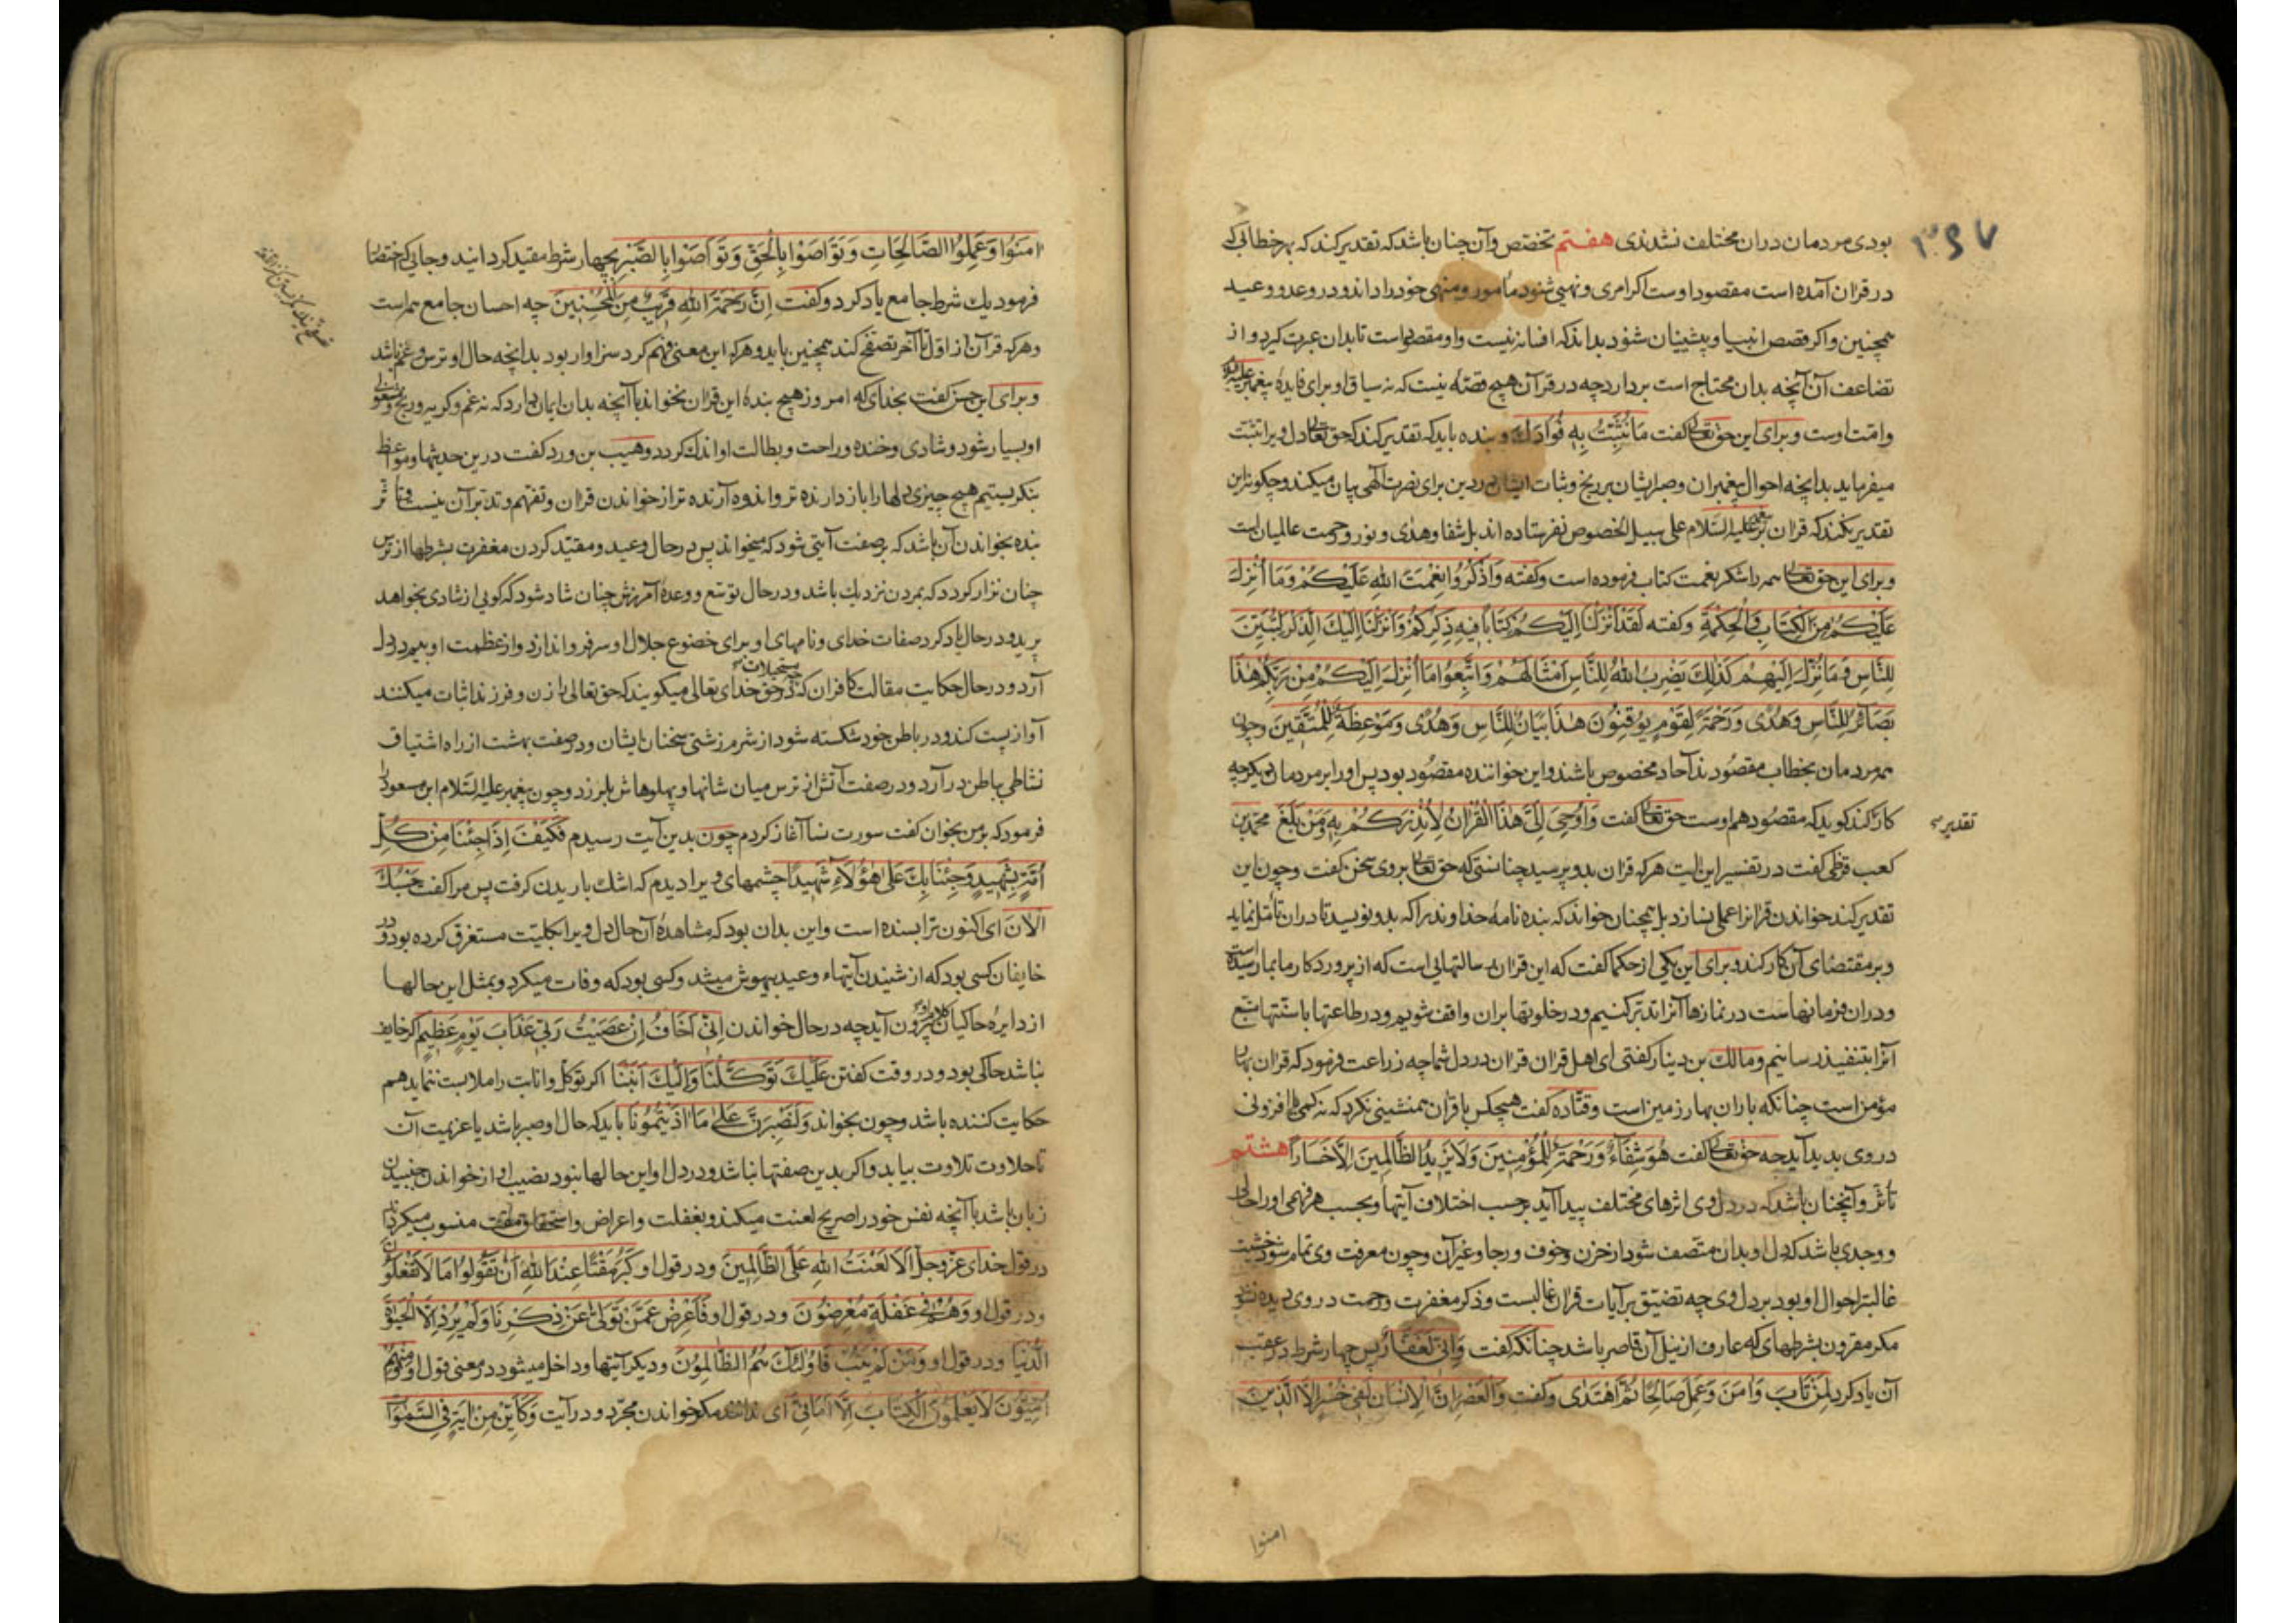 ۳۹۷
بودی مردمان دران مختلف نشدندی هفتم تخصّص وآن چنان باشد که تقدیر کند که بهر خطابی که
در قران آمده است مقصود اوست اکر امری ونهیی شنود مأمور ومنهی خود را داند ودر وعد ووعید
همچنین واکر قصص انبیا وپیشینیان شنود بداند که افسانه نیست واو مقصود است تا بدان عبرت کیرد واز
تضاعف آن آنچه بدان محتاج است بردارد چه در قرآن هیچ قصّه نیست که نه سیاق او برای فایدهٔ پیغمبر علیه السلام
وامّت اوست وبرای این حق تعالی کفت مَا نُثَبِّتُ بِهِ فُؤَادَكَ وبنده باید که تقدیر کند که حق تعالی دل ویرا تثبیت
میفرماید بدانچه احوال پیغمبران وصبر ایشان بر رنج وثبات ایشان در دین برای نصرت الهی بیان میکند وچکونه این
تقدیر نکند که قران بر پیغمبر علیه السّلام علی سبیل الخصوص نفرستاده اند بل شفا وهدی ونور ورحمت عالمیان است
وبرای این حق تعالی همه را شکر نعمت کتاب فرموده است وکفته وَاذْكُرُوا نِعْمَتَ اللهِ عَلَيْكُمْ وَمَا أُنْزِلَ
عَلَيْكُمْ مِنَ الْكِتَابِ وَالْحِكْمَةِ وکفته لَقَدْ أَنْزَلْنَا اِلَيْكُمْ كِتَابًا فِيهِ ذِكْرُكُمْ وَأَنْزَلْنَا اِلَيْكَ الذِّكْرَ لِتُبَيِّنَ
لِلنَّاسِ مَا نُزِّلَ اِلَيْهِمْ كَذٰلِكَ يَضْرِبُ اللهُ لِلنَّاسِ اَمْثَالَهُمْ وَاتَّبِعُوا مَا اُنْزِلَ اِلَيْكُمْ مِنْ رَبِّكُمْ هٰذَا
بَصَائِرُ لِلنَّاسِ وَهُدًى وَرَحْمَةٌ لِقَوْمٍ يُوقِنُونَ هٰذَا بَيَانٌ لِلنَّاسِ وَهُدًى وَمَوْعِظَةٌ لِلْمُتَّقِينَ وچون
همه مردمان بخطاب مقصُودند آحاد مخصوص باشند واین خواننده مقصُود بود پس اورا بر مردمان دیکر چه
کار تقدیر کند کوید که مقصُود هم اوست حق تعالی کفت وَاُوحِيَ اِلَيَّ هٰذَا الْقُرْاٰنُ لِاُنْذِرَكُمْ بِهِ وَمَنْ بَلَغَ محمد بن
کعب قرظی کفت در تفسیر این آیت هر که قران بدو برسید چنانستی که حق تعالی بروی سخن کفت وچون این
تقدیر کند خواندن قرآنرا عملی نسازد بل همچنان خواند که بنده نامهٔ خداوند را که بدو نویسد تا دران تأمّل نماید
وبر مقتضای آن کار کند وبرای این یکی از حکما کفت که این قران رسالتهایی است که از پروردکار ما بما رسیده است
ودران فرمانهاست در نمازها آنرا تدبّر کنیم ودر خلوتها بران واقف شویم ودر طاعتها با سنّتها متّبع
آنرا بتنفیذ رسانیم ومالک بن دینار کفتی ای اهل قران قران در دل شما چه زراعت فرمود که قران بهار
مؤمن است چنانکه باران بهار زمین است وقتاده کفت هیچکس با قرآن همنشینی نکرد که نه کمی یا افزونی
در وی پدید آید چه حق تعالی کفت هُوَ شِفَاءٌ وَرَحْمَةٌ لِلْمُؤْمِنِينَ وَلَا يَزِيدُ الظَّالِمِينَ اِلَّا خَسَارًا هشتم
تأثر وآنچنان باشد که در دل وی اثرهای مختلف پیدا آید بر حسب اختلاف آیتها وبحسب هر فهمی اورا حالی
ووجدی باشد که دل او بدان متّصف شود از حزن وخوف ورجا وغیر آن وچون معرفت وی تمام شود خشیت
غالبتر احوال او بود بر دل وی چه تضییق بر آیات قران غالبست وذکر مغفرت ورحمت در وی دیده نشود
مکر مقرون بشرطهای که عارف از نیل آن قاصر باشد چنانکه کفت وَاِنِّي لَغَفَّارٌ پس چهار شرط در عقب
آن یاد کرد لِمَنْ تَابَ وَاٰمَنَ وَعَمِلَ صَالِحًا ثُمَّ اهْتَدٰى وکفت وَالْعَصْرِ اِنَّ الْاِنْسَانَ لَفِي خُسْرٍ اِلَّا الَّذِينَ
امنوا
اٰمَنُوا وَعَمِلُوا الصَّالِحَاتِ وَتَوَاصَوْا بِالْحَقِّ وَتَوَاصَوْا بِالصَّبْرِ بچهار شرط مقید کردانید وجایی که اختصار
فرمود یك شرط جامع یاد کرد وکفت اِنَّ رَحْمَةَ اللهِ قَرِيبٌ مِنَ الْمُحْسِنِينَ چه احسان جامع همه است
وهر که قرآن از اول تا آخر تصفّح کند همچنین یابد وهر که این معنی فهم کرد سزاوار بود بدانچه حال او ترس وغم باشد
وبرای این حسن کفت بخدای که امروز هیچ بندهٔ این قران نخواند با آنچه بدان ایمان دارد که نه غم وکریه ورنج ومشغولی
او بسیار شود وشادی وخنده وراحت وبطالت او اندك کردد وهیب بن ورد کفت درین حدیثها ومواعظ
بنکریستیم هیچ چیزی دلها را باز دارنده تر واندوه آرنده تر از خواندن قران وتفهّم وتدبّر آن نیست وتأثر
بنده بخواندن آن باشد که بر صفت آیتی شود که میخواند پس در حال وعید ومقیّد کردن مغفرت بشرطها از ترس
چنان نزار کردد که بمردن نزدیك باشد ودر حال توسّع ووعدهٔ آمرزش چنان شاد شود که کویی از شادی بخواهد
پرید ودر حال یاد کرد صفات خدای ونامهای او برای خضوع جلال او سر فرو اندازد واز عظمت او بیم در دل
آرد ودر حال حکایت مقالت کافران که در حق خدای تعالی میکویند که حق تعالی را زن وفرزند اثبات میکنند
آواز پست کند ودر باطن خود شکسته شود از شرم زشتی سخنان ایشان ودر صفت بهشت از راه اشتیاق
نشاطی بباطن در آرد ودر صفت آتش از ترس میان شانها وپهلوهاش بلرزد وچون پیغمبر علیه السّلام ابن مسعود را
فرمود که بر من بخوان کفت سورت نسا آغاز کردم چون بدین آیت رسیدم فَكَيْفَ اِذَا جِئْنَا مِنْ كُلِّ
اُمَّةٍ بِشَهِيدٍ وَجِئْنَا بِكَ عَلٰى هٰؤُلَاءِ شَهِيدًا چشمهای ویرا دیدم که اشك باریدن کرفت پس مرا کفت حَسْبُكَ
الْاٰنَ ای اکنون ترا بسنده است واین بدان بود که مشاهدهٔ آن حال دل ویرا بکلیّت مستغرق کرده بود ودر
خایفان کسی بود که از شنیدن آیتهاء وعید بیهوش میشد وکسی بود که وفات میکرد وبمثل این حالها
از دایرهٔ حاکیان کلام بیرون آید چه در حال خواندن اِنِّي اَخَافُ اِنْ عَصَيْتُ رَبِّي عَذَابَ يَوْمٍ عَظِيمٍ اکر خایف
نباشد حاکی بود ودر وقت کفتن عَلَيْكَ تَوَكَّلْنَا وَاِلَيْكَ اَنَبْنَا اکر توکّل وانابت را ملابست ننماید هم
حکایت کننده باشد وچون بخواند وَلَنَصْبِرَنَّ عَلٰى مَا اٰذَيْتُمُونَا باید که حال او صبر باشد یا عزیمت آن
تا حلاوت تلاوت بیابد واکر بدین صفتها نباشد ودر دل او این حالها نبود نصیب او از خواندن جنبیدن
زبان باشد با آنچه نفس خود را صریح لعنت میکند وبغفلت واعراض واستحقاق مقت منسوب میکرداند
در قول خدای عزّ وجلّ اَلَا لَعْنَتُ اللهِ عَلَى الظَّالِمِينَ ودر قول او كَبُرَ مَقْتًا عِنْدَ اللهِ اَنْ تَقُولُوا مَا لَا تَفْعَلُونَ
ودر قول او وَهُمْ فِي غَفْلَةٍ مُعْرِضُونَ ودر قول او فَاَعْرِضْ عَمَّنْ تَوَلّٰى عَنْ ذِكْرِنَا وَلَمْ يُرِدْ اِلَّا الْحَيٰوةَ
الدُّنْيَا ودر قول او وَمَنْ لَمْ يَتُبْ فَاُولٰئِكَ هُمُ الظَّالِمُونَ ودیکر آیتها وداخل میشود در معنی قول او وَمِنْهُمْ
اُمِّيُّونَ لَا يَعْلَمُونَ الْكِتَابَ اِلَّا اَمَانِيَّ ای ندانند مکر خواندن مجرّد ودر آیت وَكَاَيِّنْ مِنْ اٰيَةٍ فِي السَّمٰوَاتِ